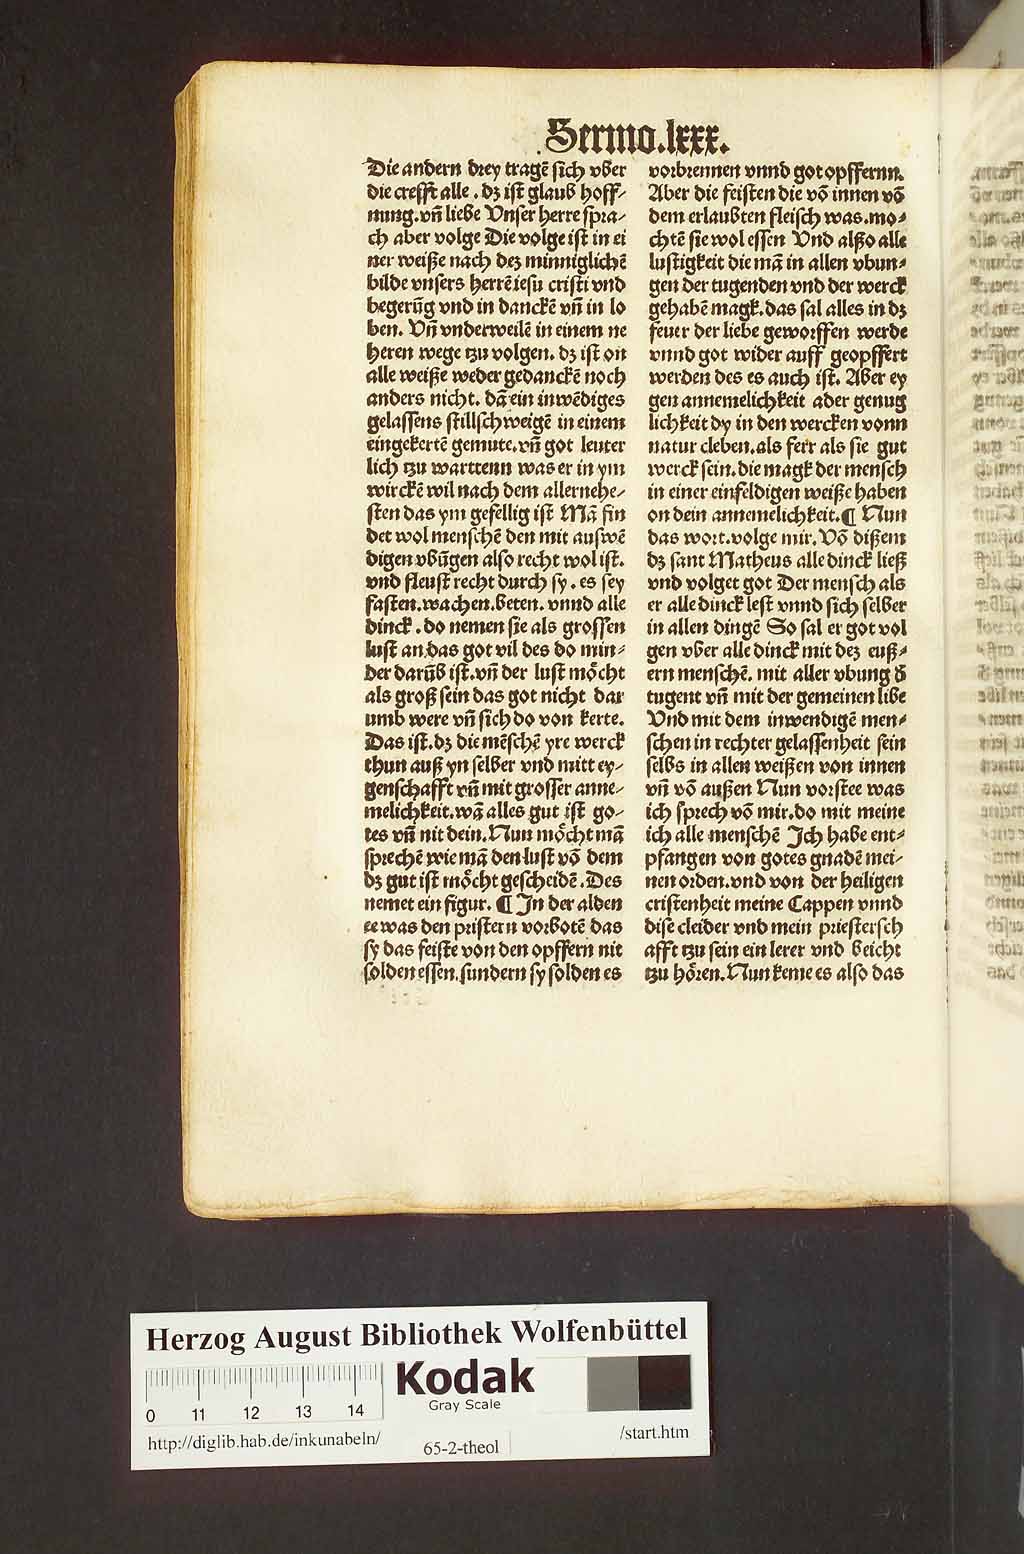 Sermo.lxxx.
Die andern drey tragē sich vber
die crefft alle. dʒ ist glaub hoff-
nung. vn̄ liebe Vnser herre spra-
ch aber volge Die volge ist in ei
ner weiße nach deʒ minniglichē
bilde vnsers herrē iesu cristi vnd
begerūg vnd in danckē vn̄ in lo
ben. Vn̄ vnderweilē in einem ne
heren wege tzu volgen. dʒ ist on
alle weiße weder gedanckē noch
anders nicht. dā ein inwēdiges
gelassens stillschweigē in einem
eingekertē gemute. vn̄ got leuter
lich tzu warttenn was er in ym
wirckē wil nach dem allernehe-
sten das ym gefellig ist Mā fin
det wol menschē den mit auswē
digen vbūgen also recht wol ist.
vnd fleust recht durch sy. es sey
fasten. wachen. beten. vnnd alle
dinck. do nemen sie als grossen
lust an das got vil des do min-
der darūb ist. vn̄ der lust mo̊cht
als groß sein das got nicht dar
umb were vn̄ sich do von kerte.
Das ist. dʒ die mēschē yre werck
thun auß yn selber vnd mitt ey-
genschafft vn̄ mit grosser anne-
melichkeit. wā alles gut ist go-
tes vn̄ nit dein. Nun mo̊cht mā
sprechē wie mā den lust vō dem
dʒ gut ist mo̊cht gescheidē. Des
nemet ein figur. ¶ In der alden
ee was den pristern vorbotē das
sy das feiste von den opffern nit
solden essen. sundern sy solden es
vorbrennen vnnd got opffernn.
Aber die feisten die vō innen vō
dem erlaubten fleisch was. mo-
chtē sie wol essen Vnd alßo alle
lustigkeit die mā in allen vbun-
gen der tugenden vnd der werck
gehabē magk. das sal alles in dʒ
feuer der liebe geworffen werde
vnnd got wider auff geopffert
werden des es auch ist. Aber ey
gen annemelichkeit ader genug
lichkeit dy in den wercken vonn
natur cleben. als ferr als sie gut
werck sein. die magk der mensch
in einer einfeldigen weiße haben
on dein annemelichkeit. ¶ Nun
das wort. volge mir. Vō dißem
dʒ sant Matheus alle dinck ließ
vnd volget got Der mensch als
er alle dinck lest vnnd sich selber
in allen dingē So sal er got vol
gen vber alle dinck mit deʒ euß-
ern menschē. mit aller vbung đ
tugent vn̄ mit der gemeinen libe
Vnd mit dem inwendigē men-
schen in rechter gelassenheit sein
selbs in allen weißen von innen
vn̄ vō außen Nun vorstee was
ich sprech vō mir. do mit meine
ich alle menschē Ich habe ent-
pfangen von gotes gnadē mei-
nen orden. vnd von der heiligen
cristenheit meine Cappen vnnd
dise cleider vnd mein priestersch
afft tzu sein ein lerer vnd beicht
tzu ho̊ren. Nun keme es also das
Herzog August Bibliothek Wolfenbüttel
Kodak
Gray Scale
0 11 12 13 14
http://diglib.hab.de/inkunabeln/
65-2-theol
/start.htm